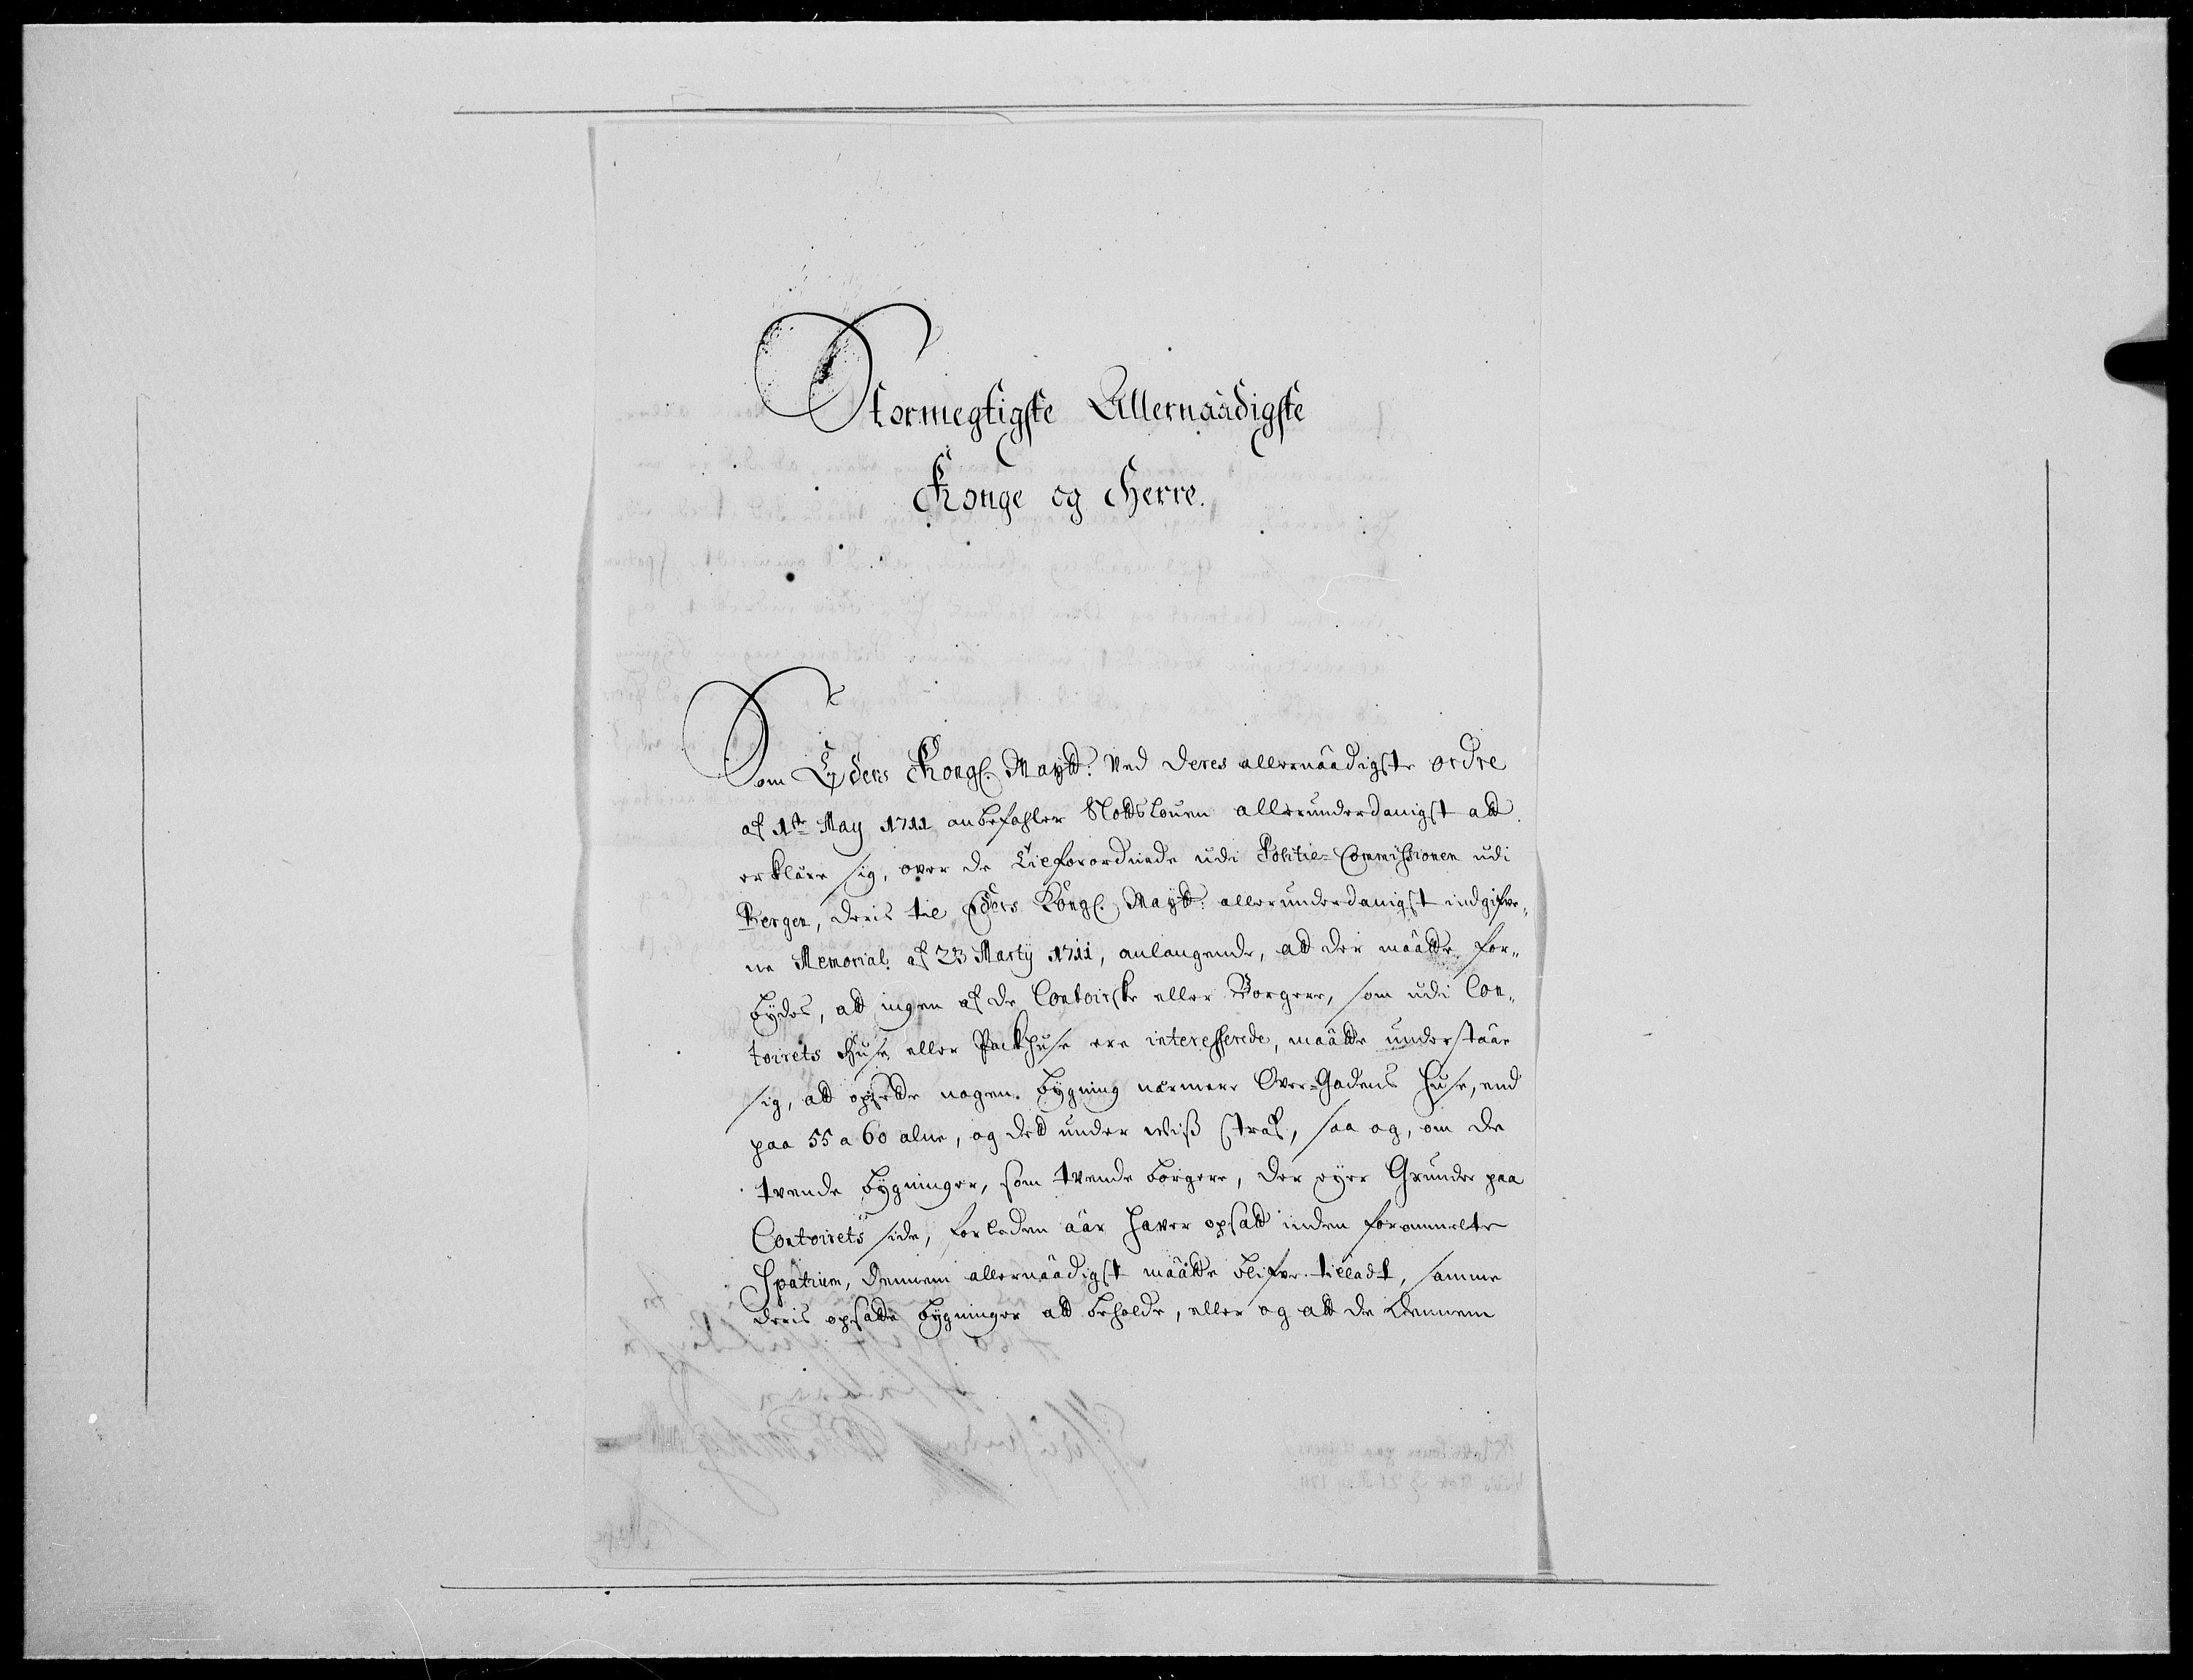 Stormegtigste Allernaadigste
Konge og Herre.
Som Eyders Kongl. Maytt: Ved deres allernaadigste ordre
af 1ste May 1711 anbefahler Slotsloven allerunderdanigst att
erklære sig, over de Tilforordnede udi Politie-Commissionen udi
Bergen, deris til Eders Kongl. Maytt: allerunderdanigst indgifve„
ne Memorial af 23 Marty 1711, anlangende, att der maatte for„
bydes, att ingen af de Contoirske eller Borgere, som udi Con„
toirets Huse eller Packhuse ere interesserede, maatte understaae
sig, att opsette nogen bygning nærmere Over-Gadens huse, end
paa 55 a 60 alne, og dett under wiss straf, saa og, om de
tvende bygninger, som tvende borgere, der eyer Grunder paa
Contoirets side, forleden aar haver opsatt inden forommelte
Spatium, dennem allernaadigst maatte blifve tilladt, samme
deris opsatte bygninger att beholde, eller og att de dennem